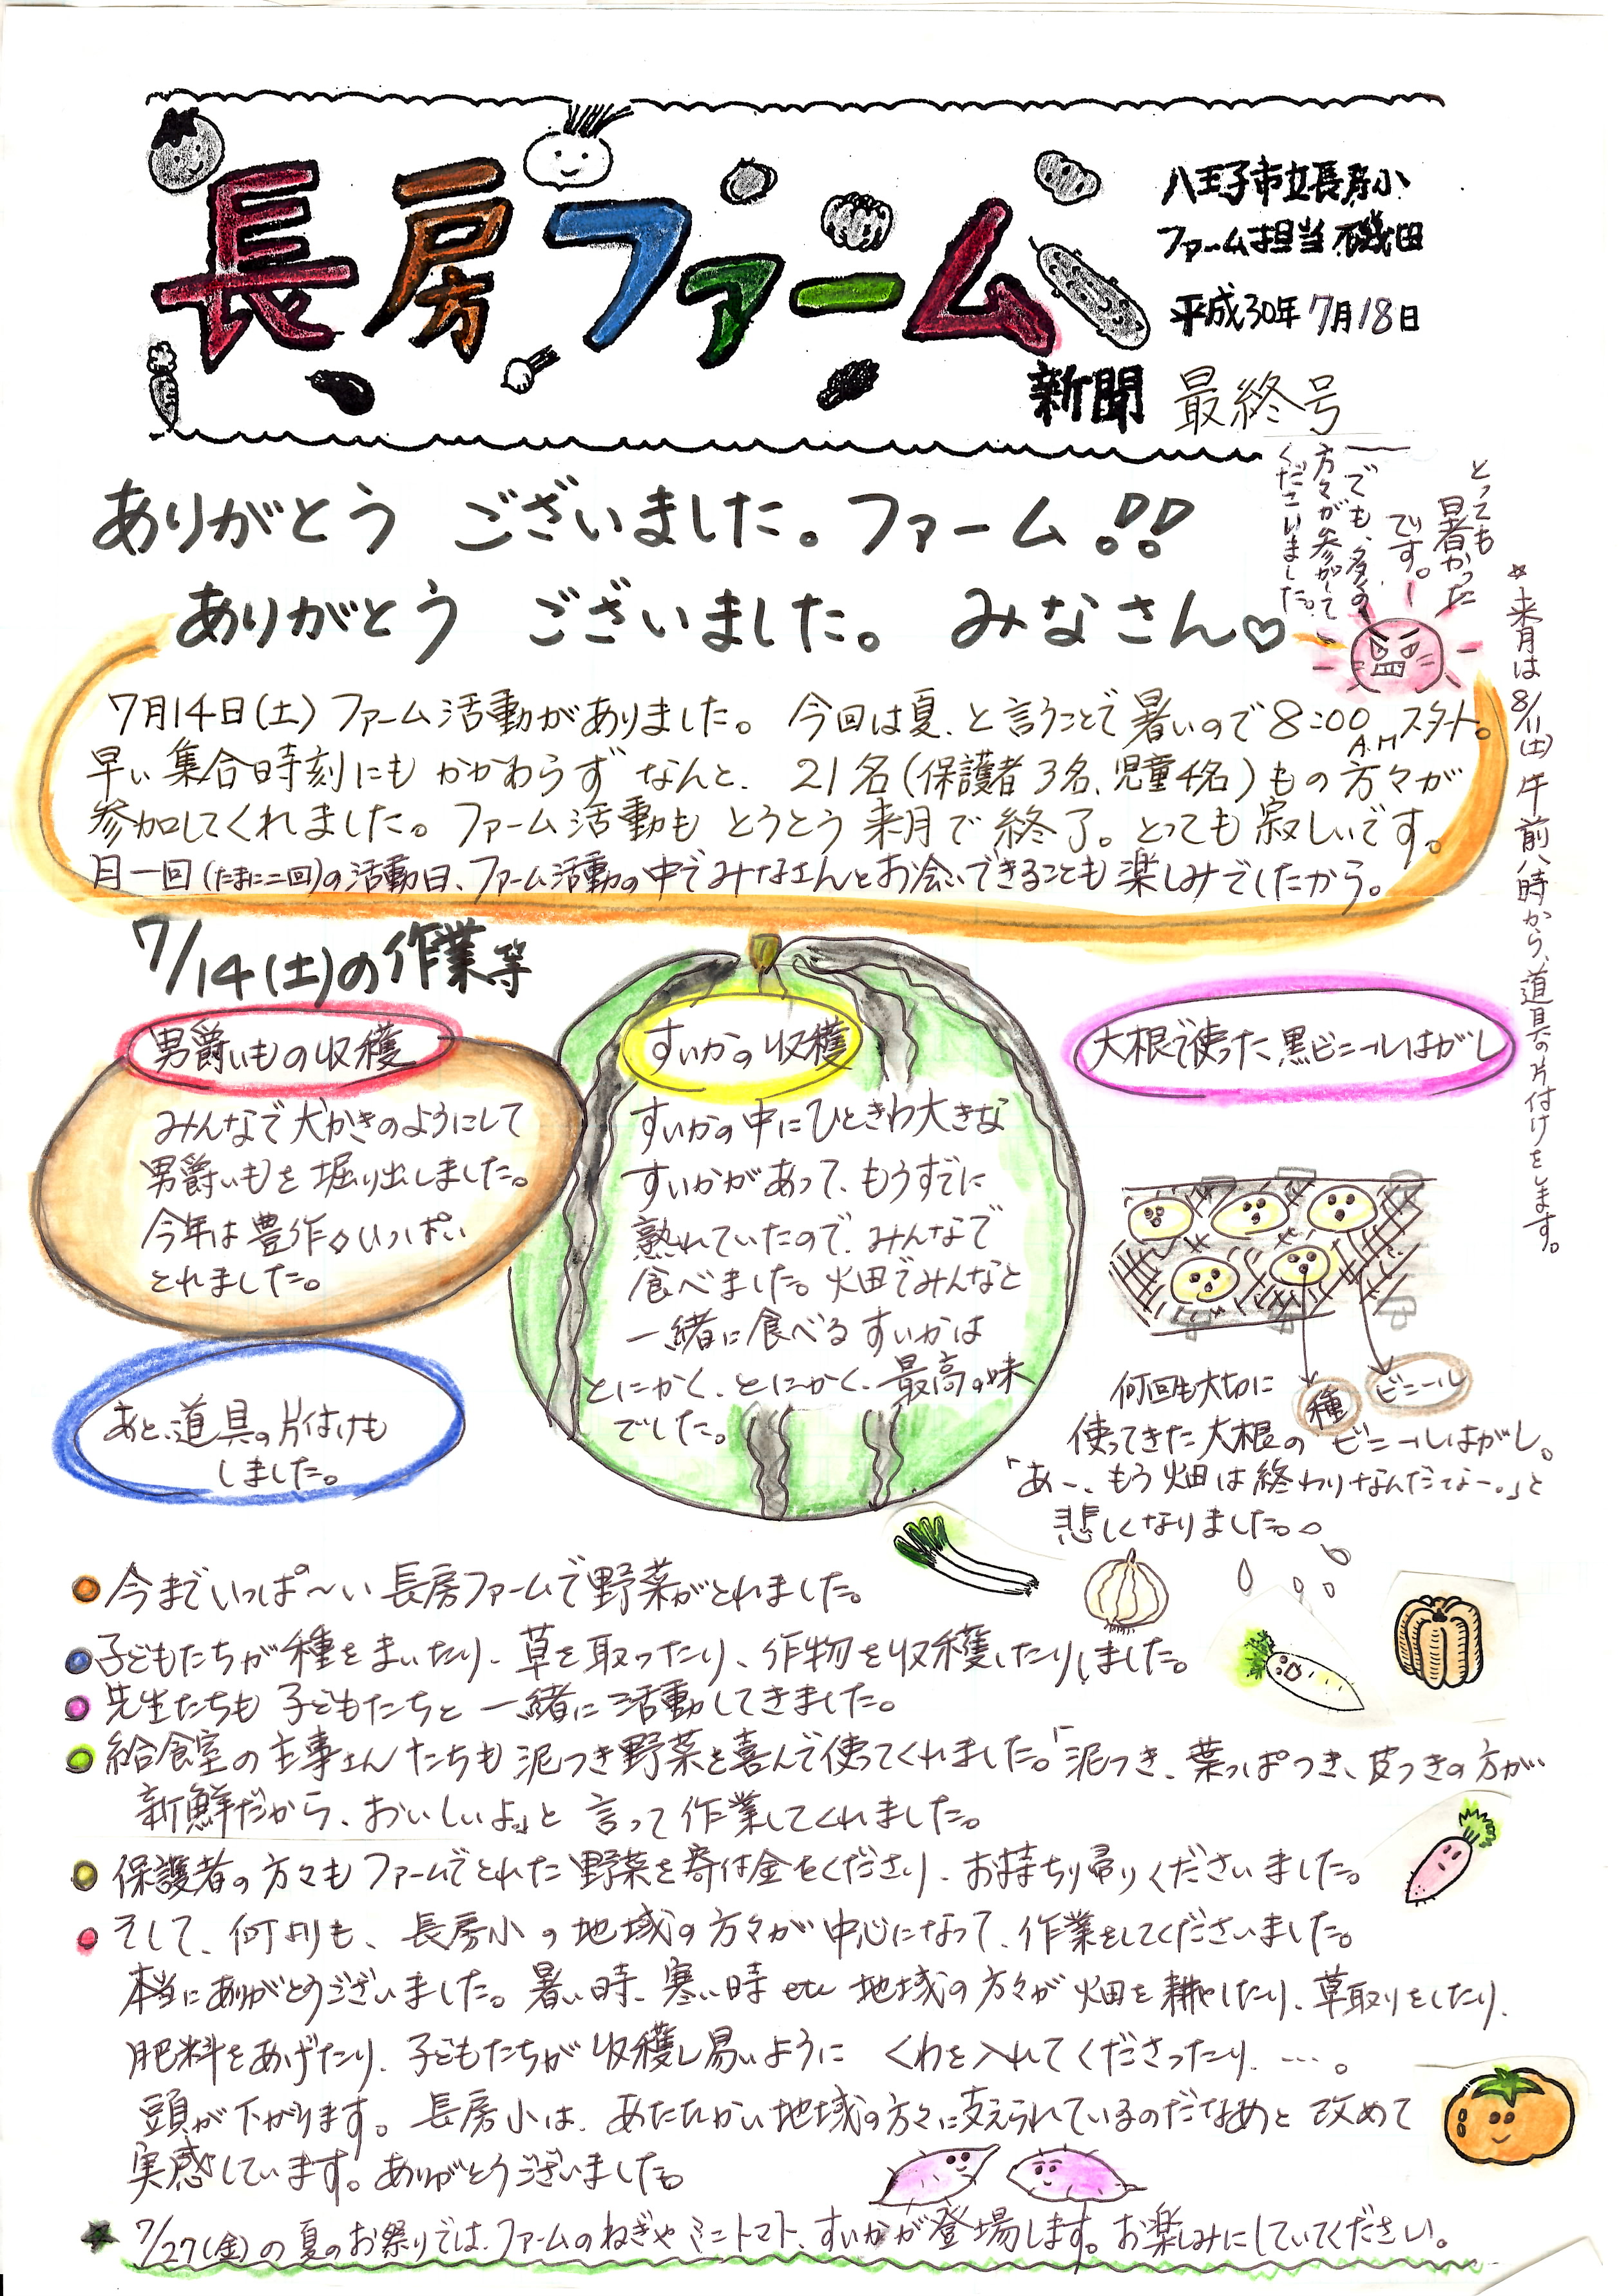 長房ファーム
新聞 最終号
八王子市立長房小
ファーム担当 磯田
平成30年 7月18日
ありがとう ございました。ファーム!!
ありがとう ございました。 みなさん♡
とっても
暑かった
です。
でも、多くの
方々が参加して
くださいました。
☆来月は8/11(土)午前八時から、道具の片付けをします。
7月14日(土)ファーム活動がありました。今回は夏、と言うことで暑いので8:00 A.M スタート。
早い集合時刻にもかかわらず なんと、21名(保護者3名、児童4名)もの方々が
参加してくれました。ファーム活動も とうとう来月で終了。とっても寂しいです。
月一回(たまに二回)の活動日、ファーム活動の中でみなさんとお会いできることも楽しみでしたから。
7/14(土)の作業等
男爵いもの収穫
みんなで犬かきのようにして
男爵いもを堀り出しました。
今年は豊作◇いっぱい
とれました。
あと、道具の片付けも
しました。
すいかの収穫
すいかの中にひときわ大きな
すいかがあって、もうすでに
熟れていたので、みんなで
食べました。畑でみんなと
一緒に食べるすいかは
とにかく、とにかく、最高の味
でした。
大根で使った黒ビニールはがし
種
ビニール
何回も大切に
使ってきた大根のビニールはがし。
「あー、もう畑は終わりなんだなー。」と
悲しくなりました。
今までいっぱ〜い長房ファームで野菜がとれました。
子どもたちが種をまいたり、草を取ったり、作物を収穫したりしました。
先生たちも子どもたちと一緒に活動してきました。
給食室の主事さんたちも泥つき野菜を喜んで使ってくれました。「泥つき、葉っぱつき、皮つきの方が
新鮮だから、おいしいよ。」と言って作業してくれました。
保護者の方々もファームでとれた野菜を寄付金をくださり、お持ち帰りくださいました。
そして、何よりも、長房小の地域の方々が中心になって、作業をしてくださいました。
本当にありがとうございました。暑い時、寒い時 etc 地域の方々が畑を耕したり、草取りをしたり、
肥料をあげたり、子どもたちが収穫し易いように くわを入れてくださったり、…。
頭が下がります。長房小は、あたたかい地域の方々に支えられているのだなあと改めて
実感しています。ありがとうございました。
★ 7/27(金)の夏のお祭りでは、ファームのねぎやミニトマト、すいかが登場します。お楽しみにしていてください。